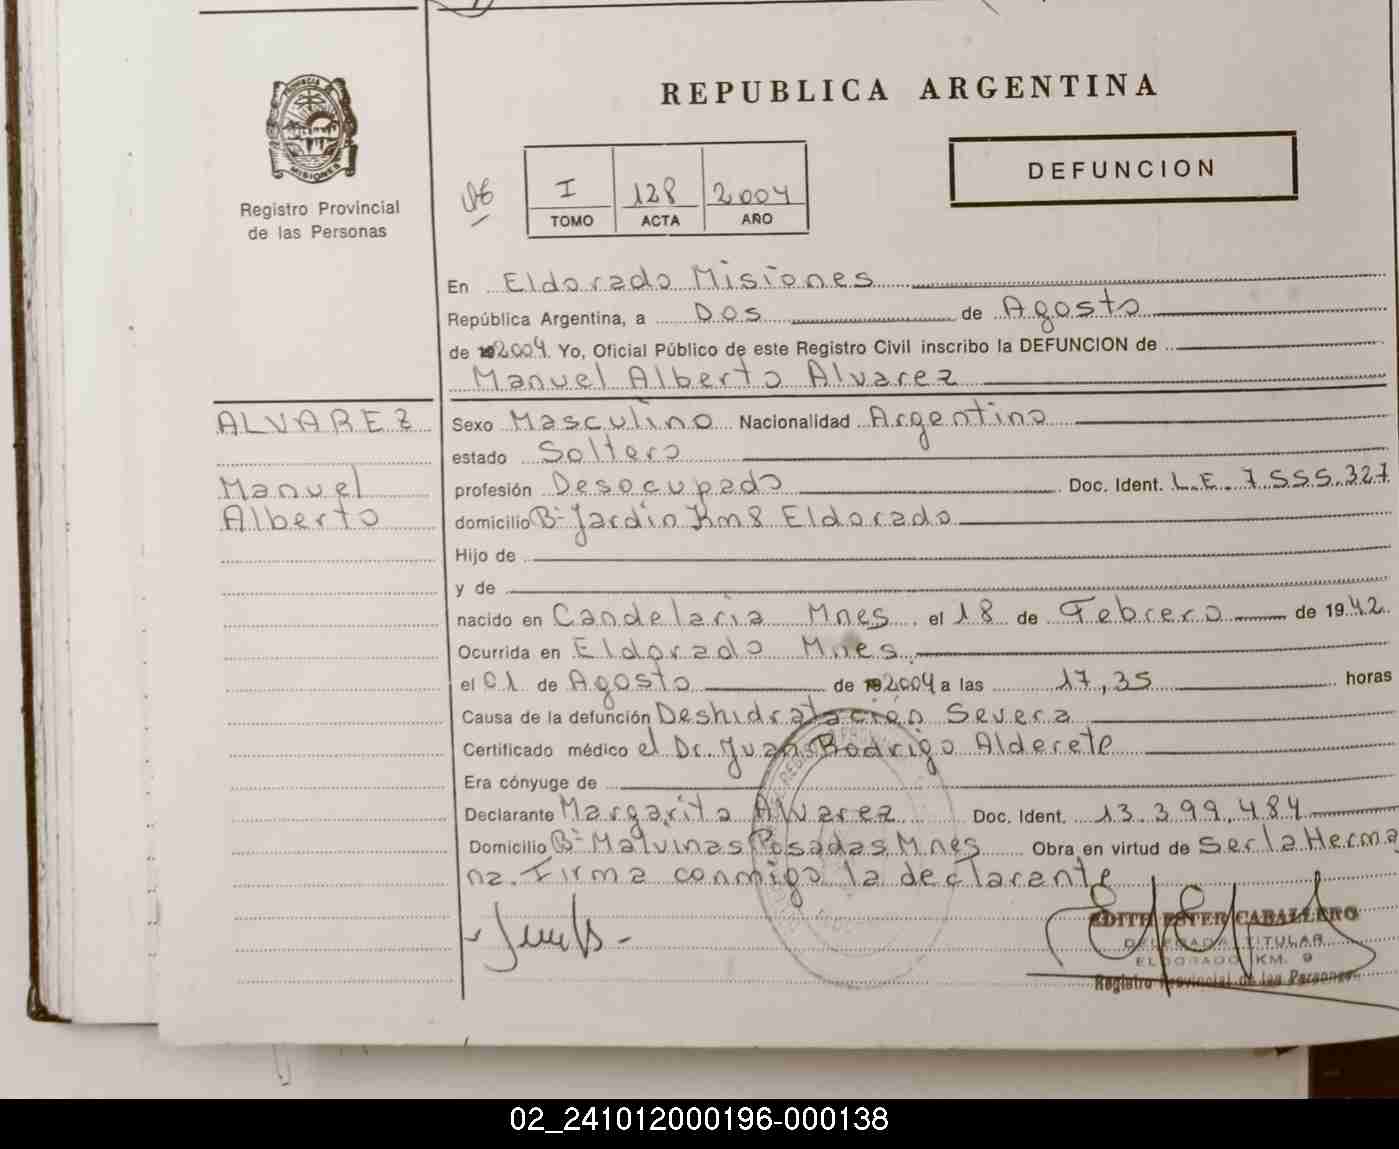 REPUBLICA ARGENTINA
PROVINCIA DE
MISIONES
Registro Provincial
de las Personas
I 128 2004
TOMO ACTA AÑO
DEFUNCION
En Eldorado Misiones
República Argentina, a Dos de Agosto
de 2004. Yo, Oficial Público de este Registro Civil inscribo la DEFUNCION de
Manuel Alberto Alvarez
ALVAREZ
Manuel
Alberto
Sexo Masculino Nacionalidad Argentino
estado Soltero
profesión Desocupado Doc. Ident. L.E. 7.555.327
domicilio Bº Jardín Km 8 Eldorado
Hijo de
y de
nacido en Candelaria Mnes. el 18 de Febrero de 1942
Ocurrida en Eldorado Mnes.
el 01 de Agosto de 2004 a las 17,35 horas
Causa de la defunción Deshidratación Severa
Certificado médico el Dr. Juan Rodrigo Alderete
Era cónyuge de
Declarante Margarita Alvarez Doc. Ident. 13.399.484
Domicilio Bº Malvinas Posadas Mnes Obra en virtud de Ser la Herma
na. Firma conmigo la declarante
EDITH ESTER CABALLERO
DELEGADA TITULAR
ELDORADO KM. 9
Registro Provincial de las Personas
02_241012000196-000138